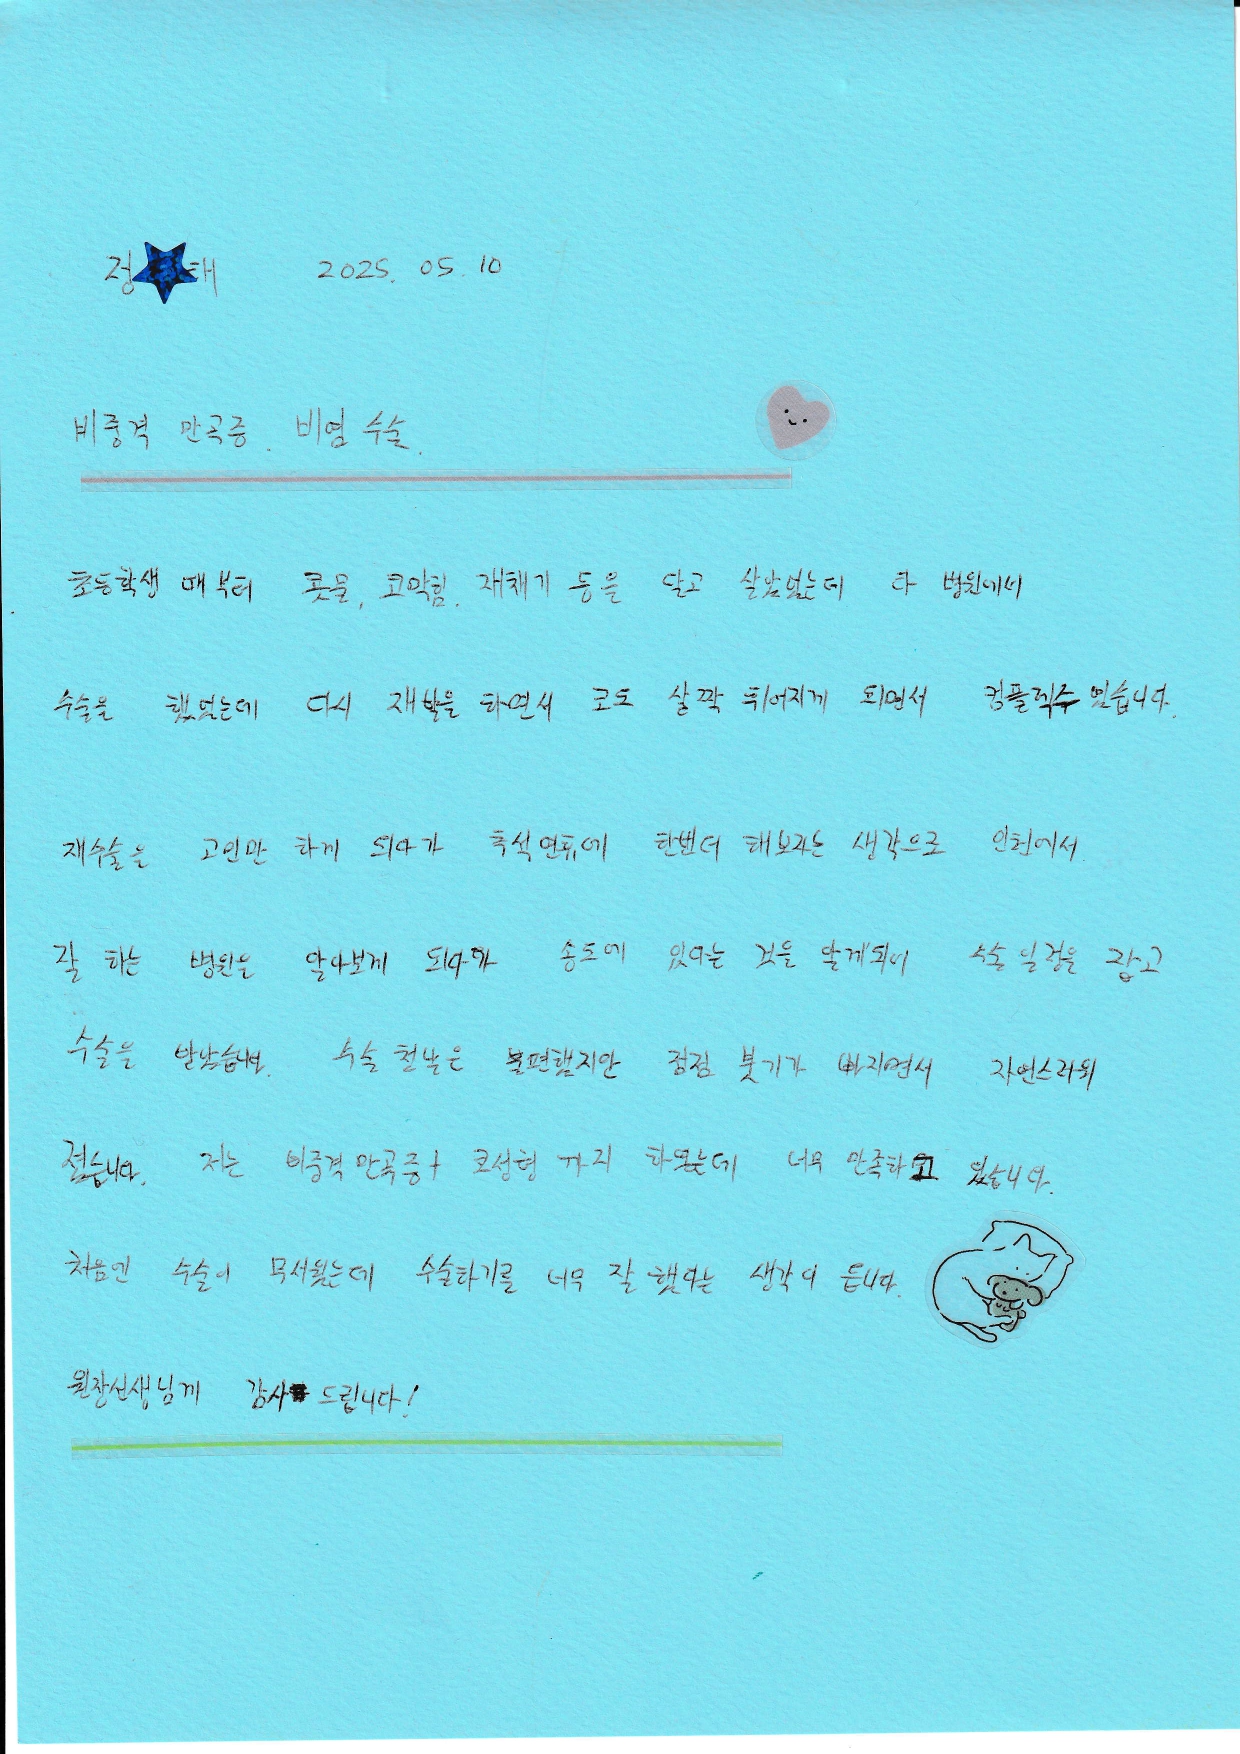 정 태 2025. 05. 10
비중격 만곡증. 비염 수술.
초등학생 때부터 콧물, 코막힘, 재채기 등을 달고 살았었는데 타 병원에서
수술을 했었는데 다시 재발을 하면서 코도 살짝 휘어지게 되면서 컴플렉주 있습니다.
재수술을 고민만 하게 되다가 추석 연휴에 한번더 해보자는 생각으로 인천에서
잘 하는 병원을 알아보게 되다가 송도에 있다는 것을 알게되어 수술 일정을 잡고
수술을 받았습니다. 수술 첫날은 불편했지만 점점 붓기가 빠지면서 자연스러워
졌습니다. 저는 비중격 만곡증+ 코성형 까지 하였는데 너무 만족하고 있습니다.
처음엔 수술이 무서웠는데 수술하기를 너무 잘 했다는 생각이 듭니다.
원장선생님께 감사 드립니다!